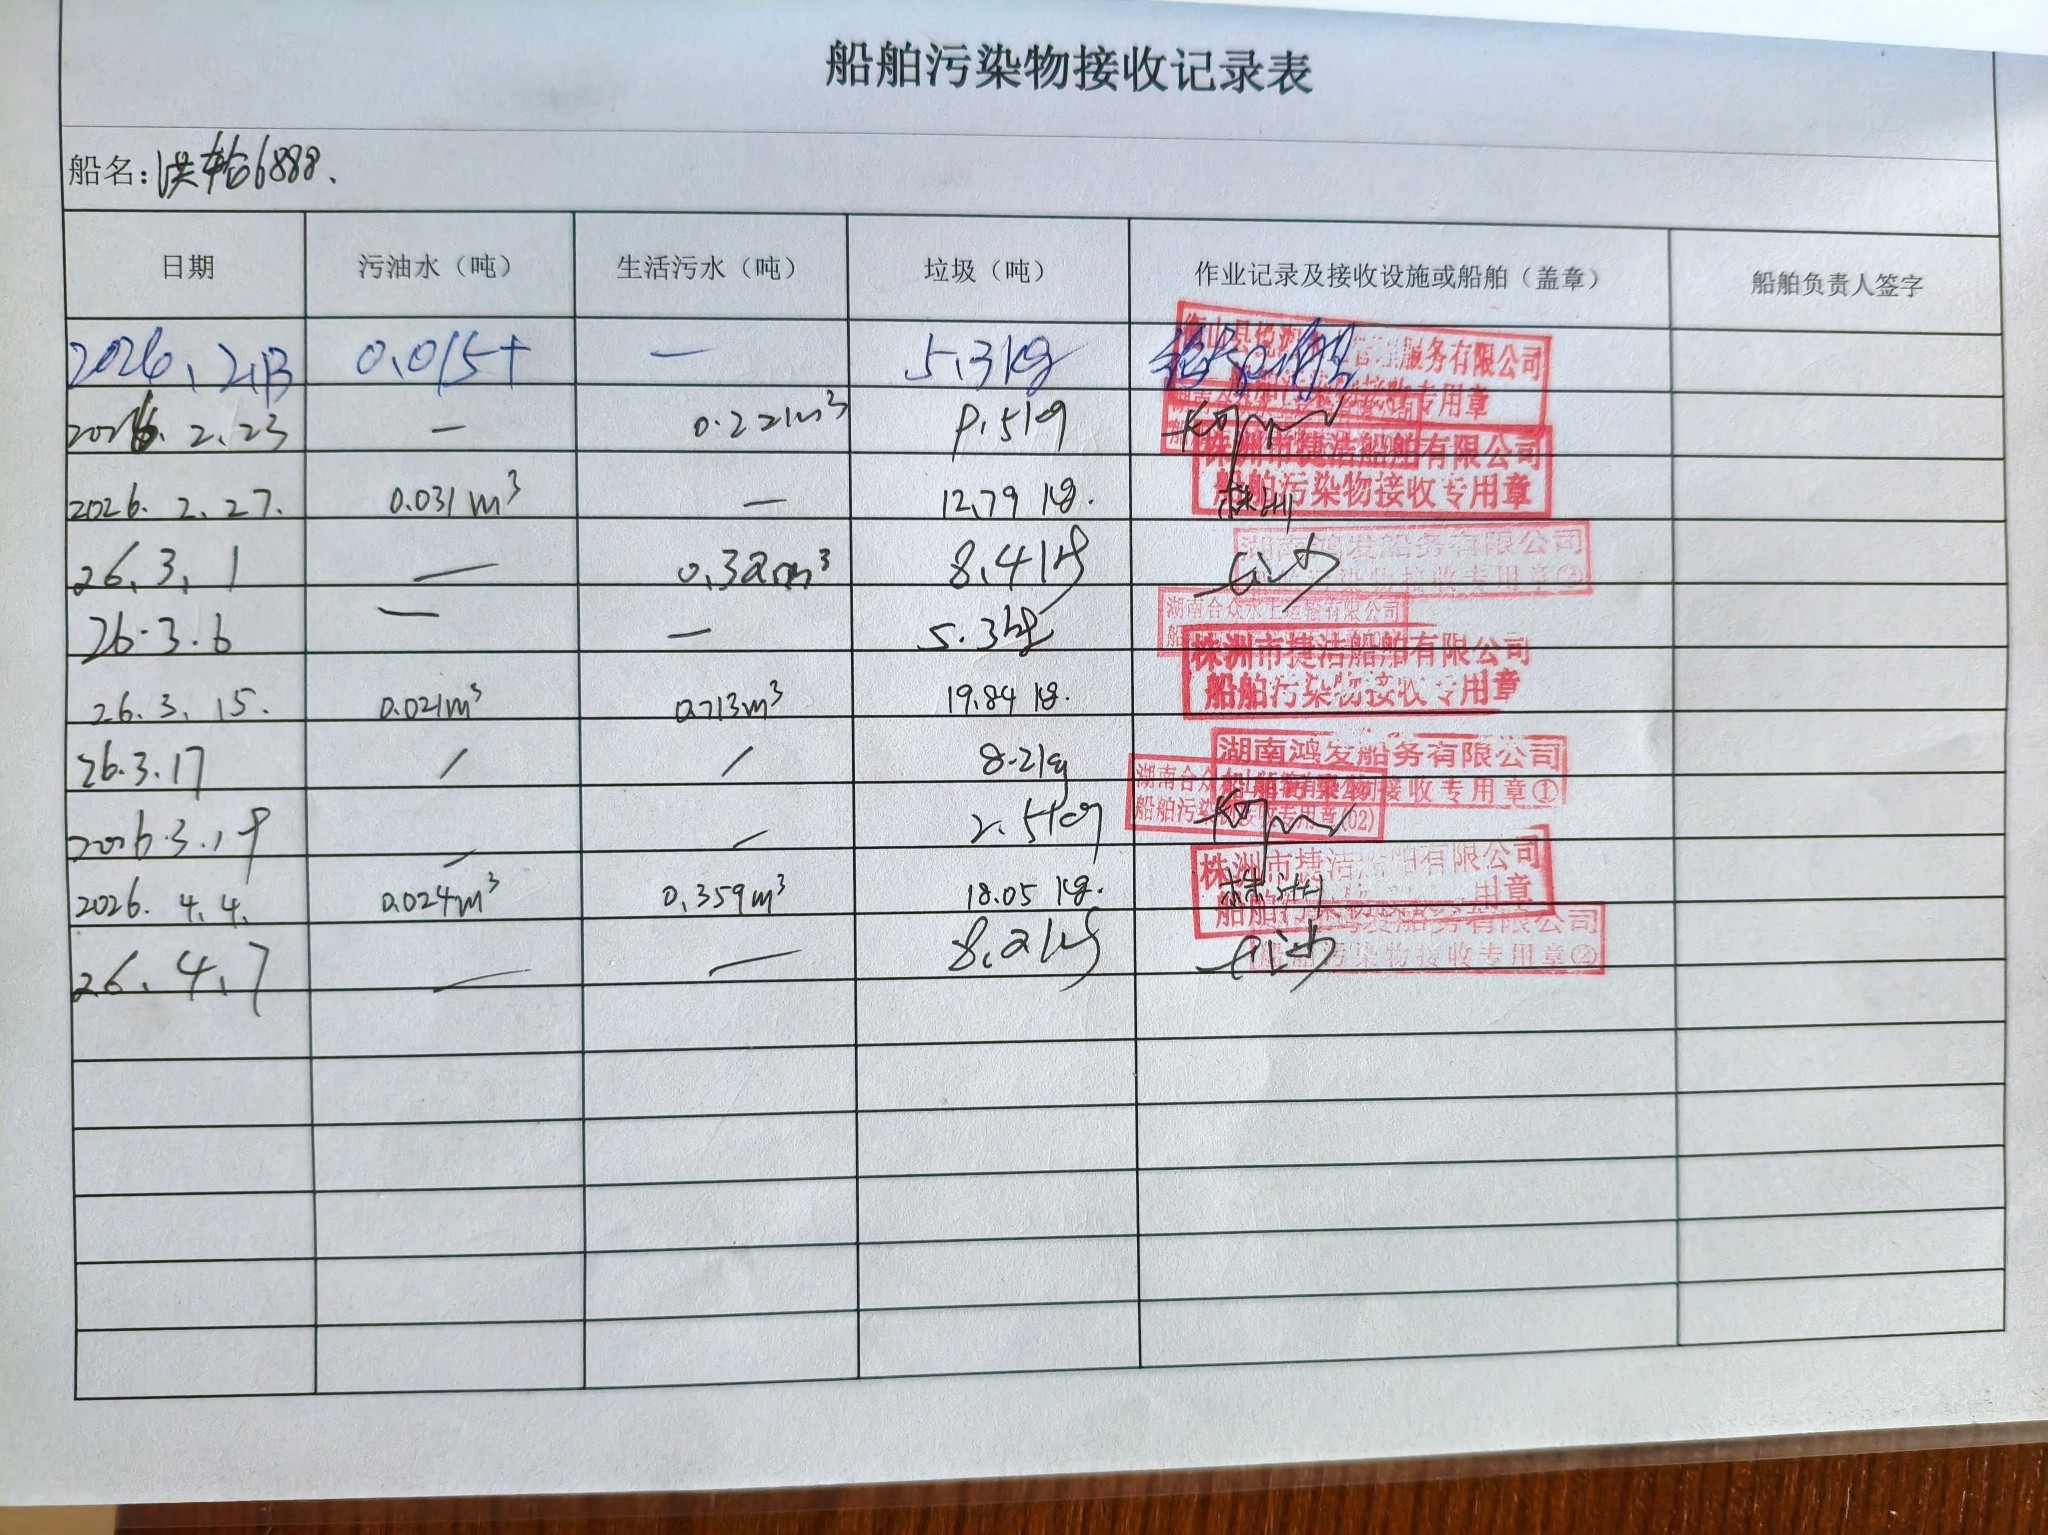 船舶污染物接收记录表
船名：洪翰6888.
日期 污油水（吨） 生活污水（吨） 垃圾（吨） 作业记录及接收设施或船舶（盖章） 船舶负责人签字
2026.2.13 0.015t — 5.3kg
服务有限公司
专用章
2026.2.23 — 0.221m³ 9.5kg
株洲市捷洁船舶有限公司
船舶污染物接收专用章
2026.2.27. 0.031m³ — 12.79kg. 株洲
湖南鸿发船务有限公司
污染物接收专用章②
26.3.1 — 0.32m³ 8.4kg 长沙
湖南合众水上运输有限公司
26.3.6 — — 5.3kg
株洲市捷洁船舶有限公司
船舶污染物接收专用章
26.3.15. 0.021m³ 0.713m³ 19.84kg.
湖南鸿发船务有限公司
接收专用章①
26.3.17 / / 8.2kg
湖南合众
船舶污染物接收专用章(02)
2026.3.19 / / 2.5kg
株洲市捷洁船舶有限公司
船舶污染物接收专用章
2026.4.4. 0.024m³ 0.359m³ 18.05kg. 株洲
鸿发船务有限公司
船舶污染物接收专用章②
26.4.7 — — 8.2kg 长沙